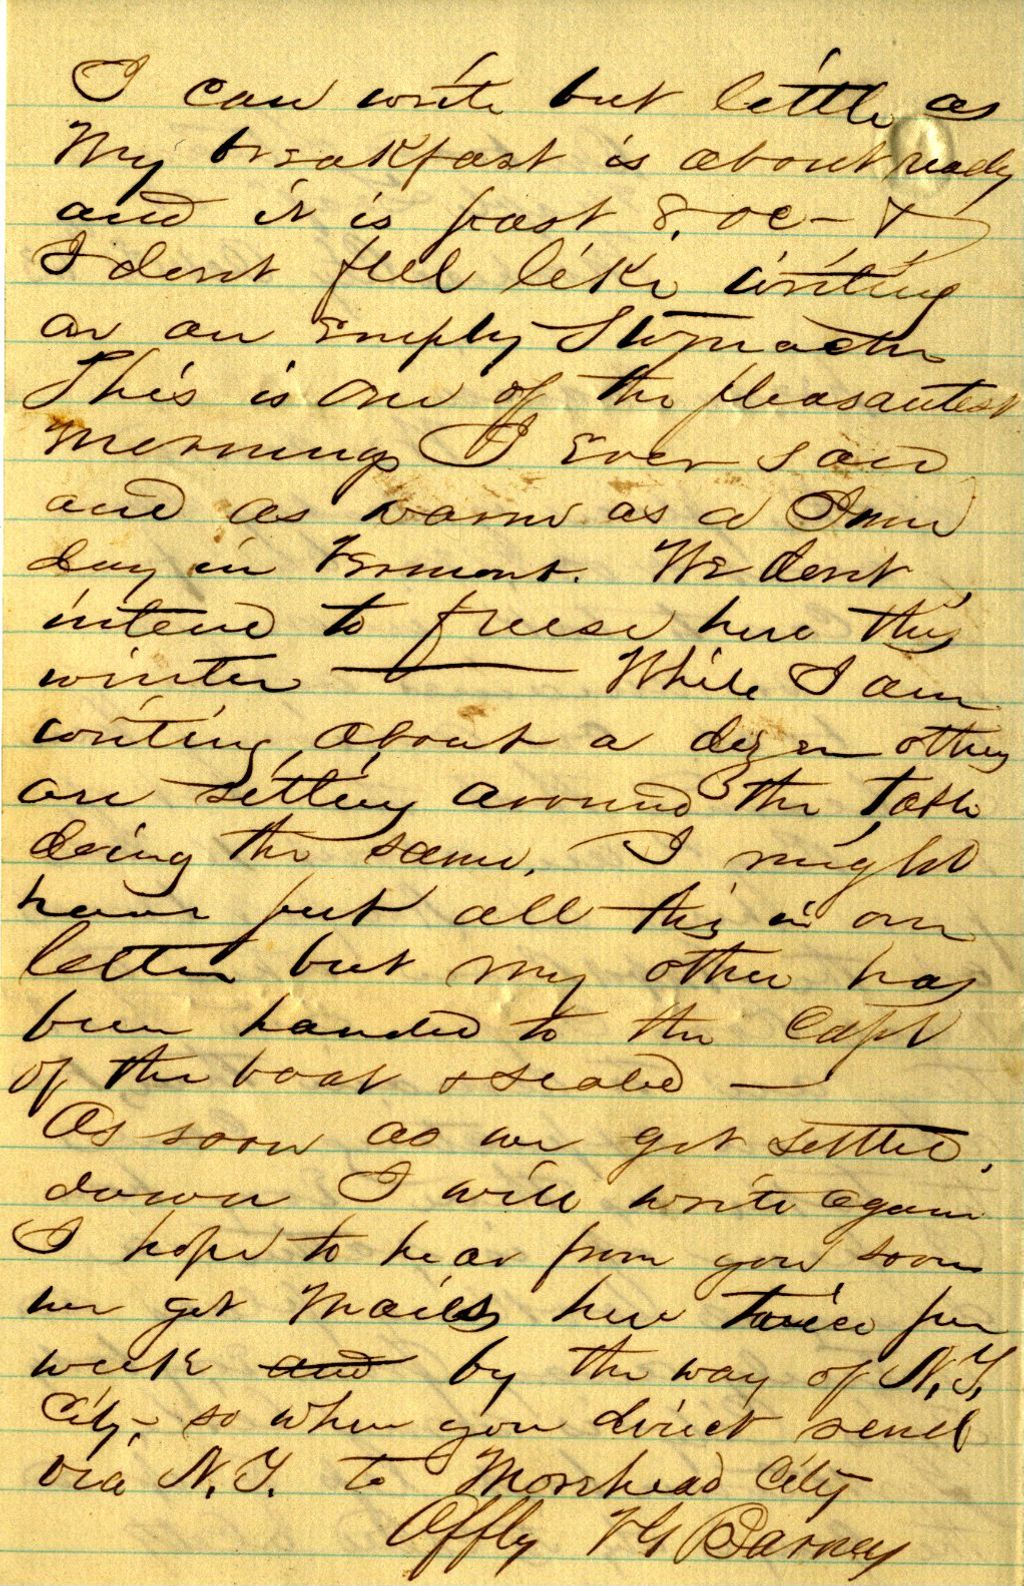 I can write but little as
My breakfast is about ready
and it is past 8. oc - &
I dont feel like writing
on an Empty Stomach
This is one of the pleasantest
mornings I Ever saw
and as warm as a June
day in Vermont. We dont
intend to freese here this
winter — While I am
writing about a dozen others
are setting around the table
doing the same. I might
have put all this in one
letter but my other has
been handed to the Capt
of the boat & sealed —
As soon as we get settled
down I will write again
I hope to hear from you soon
we get Mails here twice per
week and by the way of N.Y.
City - so when you direct send
via N.Y. to Morehead City
Affly V G Barney